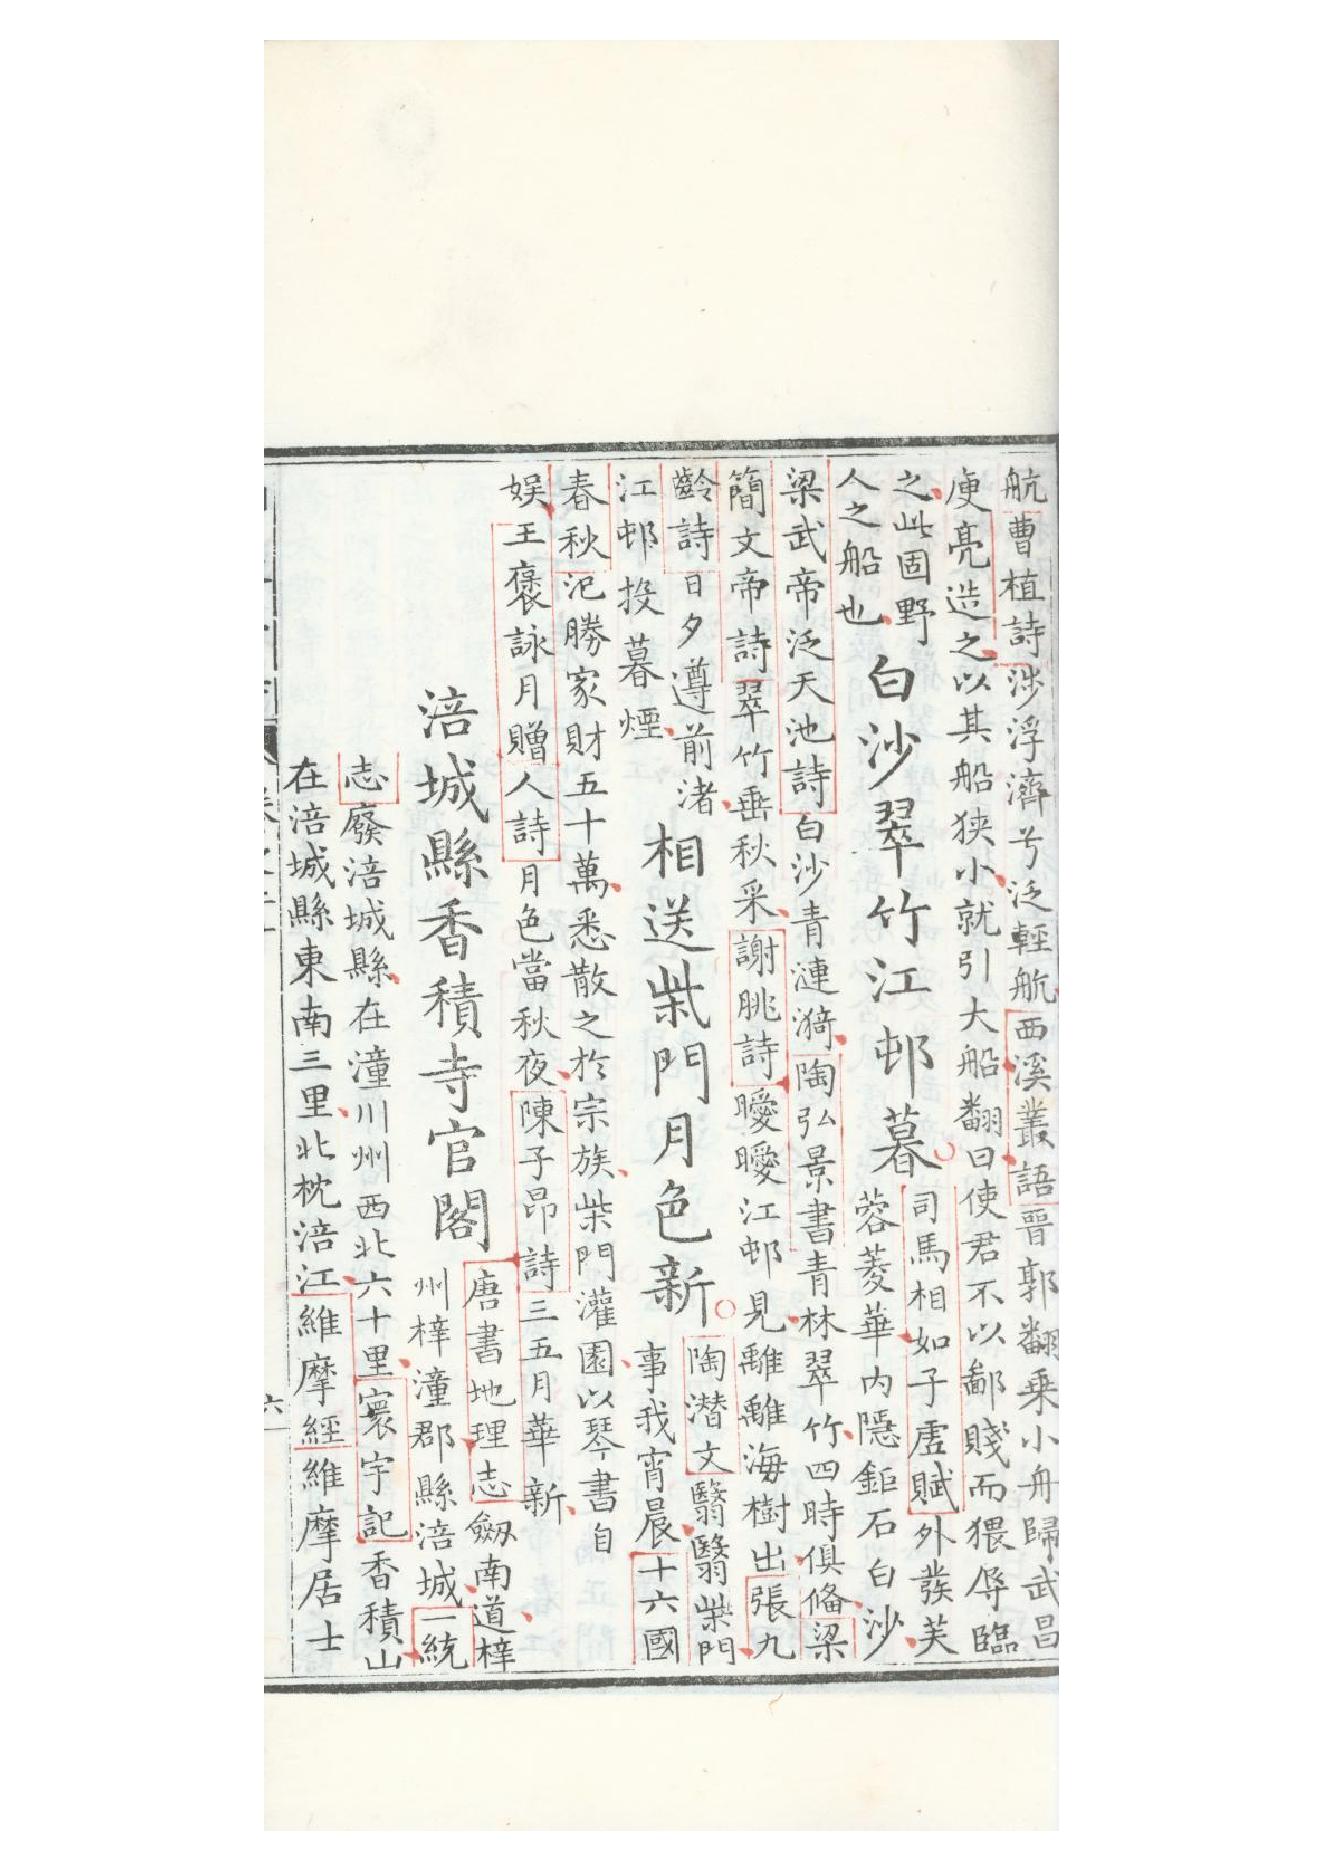 航曹植詩涉浮濟兮泛輕航西溪叢語晉郭翻乗小舟歸武昌
庾亮造之以其船狹小就引大船翻曰使君不以鄙賤而猥辱臨
之此固野
人之船也
白沙翠竹江邨暮
司馬相如子虛賦外發芙
蓉菱華內隱鉅石白沙
梁武帝泛天池詩白沙青漣漪陶弘景書青林翠竹四時俱備梁
簡文帝詩翠竹垂秋采謝朓詩曖曖江邨見離離海樹出張九
齡詩日夕遵前渚
江邨投暮煙
相送柴門月色新
陶潛文翳翳柴門
事我宵晨十六國
春秋氾勝家財五十萬悉散之於宗族柴門灌園以琴書自
娱王襃詠月贈人詩月色當秋夜陳子昂詩三五月華新
涪城縣香積寺官閣
唐書地理志劒南道梓
州梓潼郡縣涪城一統
志廢涪城縣在潼川州西北六十里寰宇記香積山
在涪城縣東南三里北枕涪江維摩經維摩居士
六